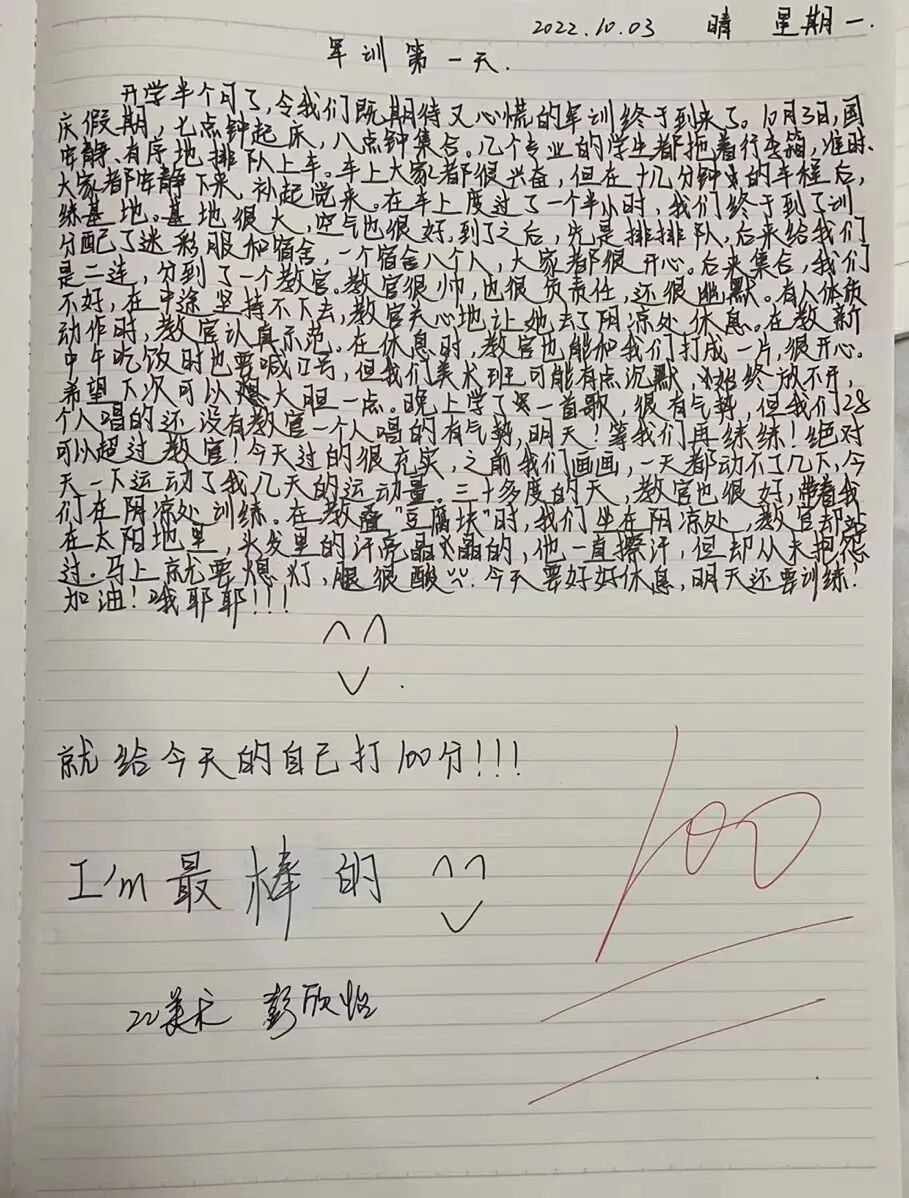 2022.10.03 晴 星期一.
军训第一天.
开学半个月了,令我们既期待又心慌的军训终于到来了。10月3日,国
庆假期,七点钟起床,八点钟集合。几个专业的学生都拖着行李箱,准时、
安静、有序地排队上车。车上大家都很兴奋,但在十几分钟的车程后,
大家都安静下来,补起觉来。在车上度过了一个半小时,我们终于到了训
练基地。基地很大,空气也很好,到了之后,先是排排队,后来给我们
分配了迷彩服和宿舍,一个宿舍八个人,大家都很开心。后来集合,我们
是二连,分到了一个教官。教官很帅,也很负责任,还很幽默。有人体质
不好,在中途坚持不下去,教官关心地让她去了阴凉处休息。在教新
动作时,教官认真示范。在休息时,教官也能和我们打成一片,很开心。
中午吃饭时也要喊口号,但我们美术班可能有点沉默,始终放不开,
希望下次可以大胆一点。晚上学了一首歌,很有气势,但我们28
个人唱的还没有教官一个人唱的有气势,明天!等我们再练练!绝对
可以超过教官!今天过的很充实,之前我们画画,一天都动不了几下,今
天一下运动了我几天的运动量。三十多度的天,教官也很好,带着我
们在阴凉处训练。在教叠"豆腐块"时,我们坐在阴凉处,教官却站
在太阳地里,头发里的汗亮晶晶的,他一直擦汗,但却从未抱怨
过.马上就要熄灯,腿很酸.今天要好好休息,明天还要训练!
加油!哦耶耶!!!
就给今天的自己打100分!!!
I'm最棒的
22美术 彭欣怡
100